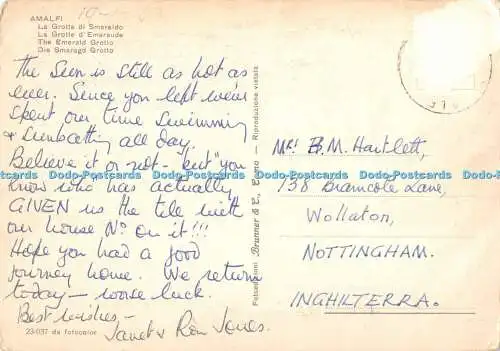 AMALFI
La Grotta di Smeraldo
La Grotte d'Emeraude
The Emerald Grotto
Die Smaragd Grotto
The Sun is still as hot as
ever. Since you left we've
spent our time swimming
& sunbathing all day.
Believe it or not - but "you
know who" has actually
GIVEN us the tile with
our house No on it!!!
Hope you had a good
journey home. We return
today - worse luck.
Best wishes -
Janet & Ron Jones.
23-037 da fotocolor
Riproduzione vietata
Mrs B.M. Hartlett,
138 Bramcote Lane,
Wollaton,
NOTTINGHAM.
INGHILTERRA.
Dodo-Postcards Dodo-Postcards Dodo-Postcards